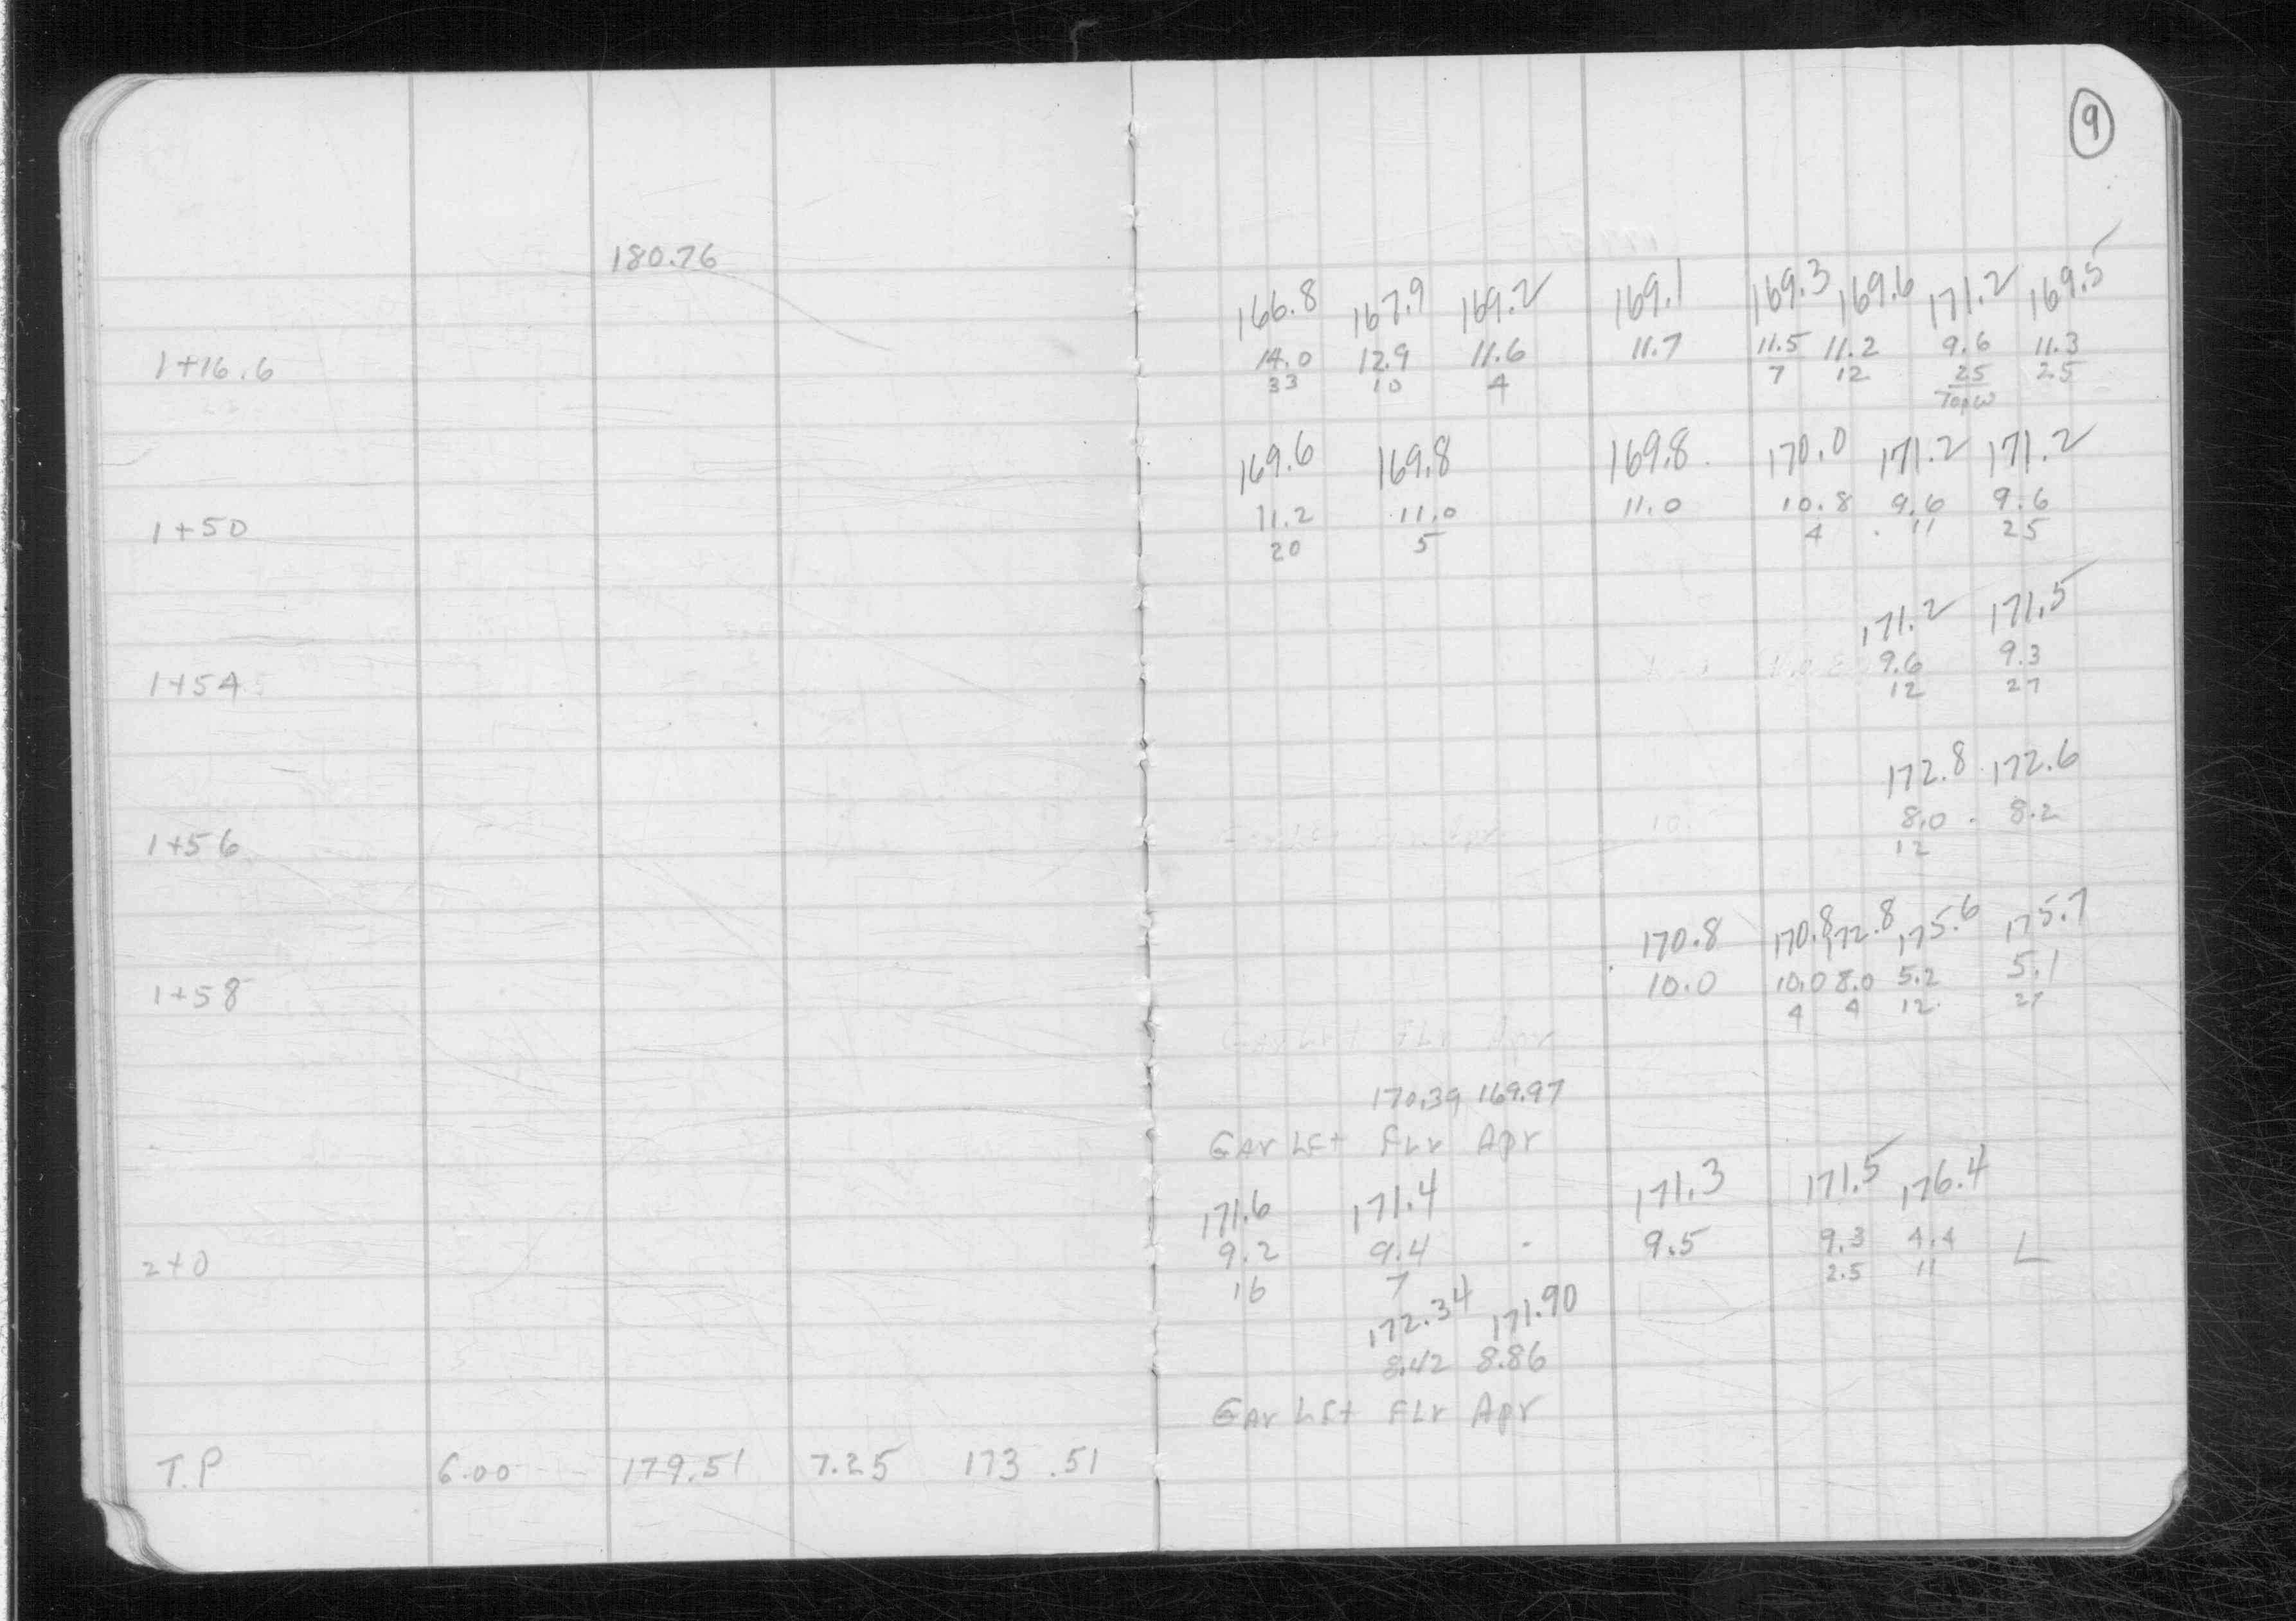 9
180.76
166.8 167.9 169.2 169.1 169.3 169.6 171.2 169.5
1+16.6 14.0 12.9 11.6 11.7 11.5 11.2 9.6 11.3
33 10 4 7 12 25 25
Top W
169.6 169.8 169.8 170.0 171.2 171.2
1+50 11.2 11.0 11.0 10.8 9.6 9.6
20 5 4 11 25
171.2 171.5
1+54 9.6 9.3
12 27
172.8 172.6
1+56 8.0 8.2
12
170.8 170.8 172.8 175.6 175.7
1+58 10.0 10.0 8.0 5.2 5.1
4 4 12 27
170.39 169.97
Gar Lft Flr Apr
171.6 171.4 171.3 171.5 176.4
2+0 9.2 9.4 9.5 9.3 4.4 L
16 7 2.5 11
172.34 171.90
8.42 8.86
Gar Lft Flr Apr
T.P 6.00 179.51 7.25 173.51